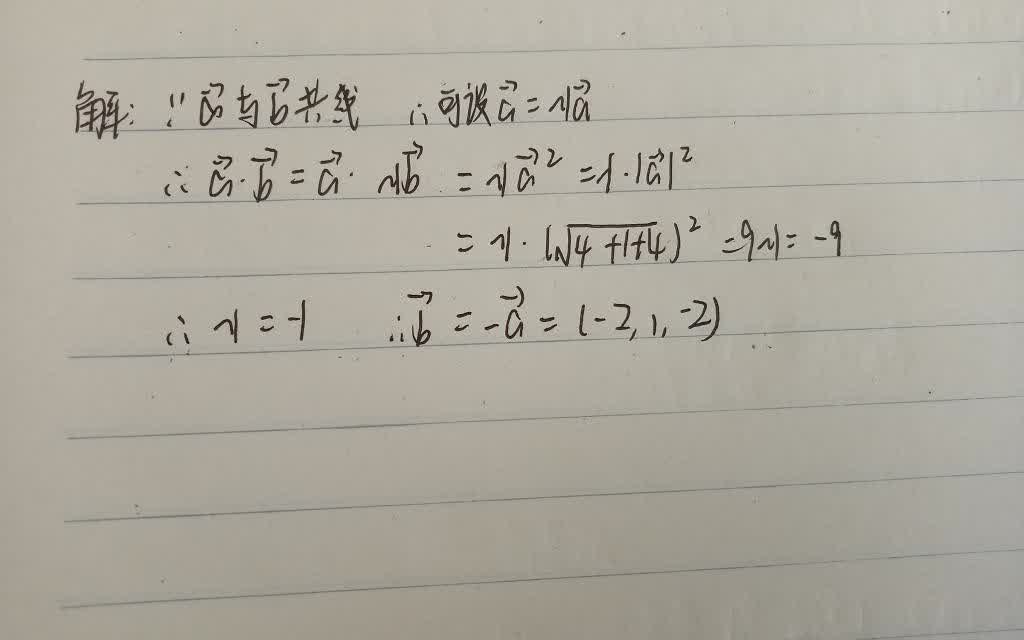 解: ∵ a⃗与b⃗共线 ∴可设a⃗=λa⃗
∴ a⃗·b⃗=a⃗·λb⃗ =λa⃗²=λ·|a⃗|²
=λ·(√4+1+4)²=9λ=-9
∴ λ=-1 ∴b⃗=-a⃗=(-2,1,-2)